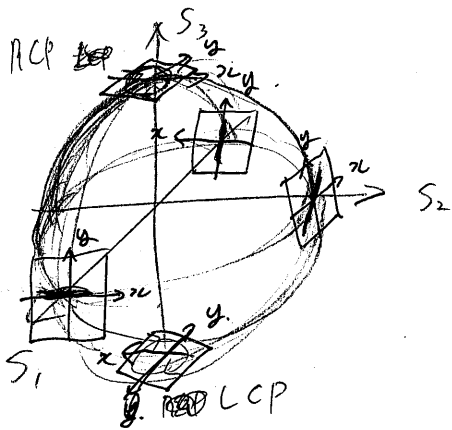 S3
RCP
y
x
y
x
y
x
S2
y
x
S1
y.
x
y.
LCP